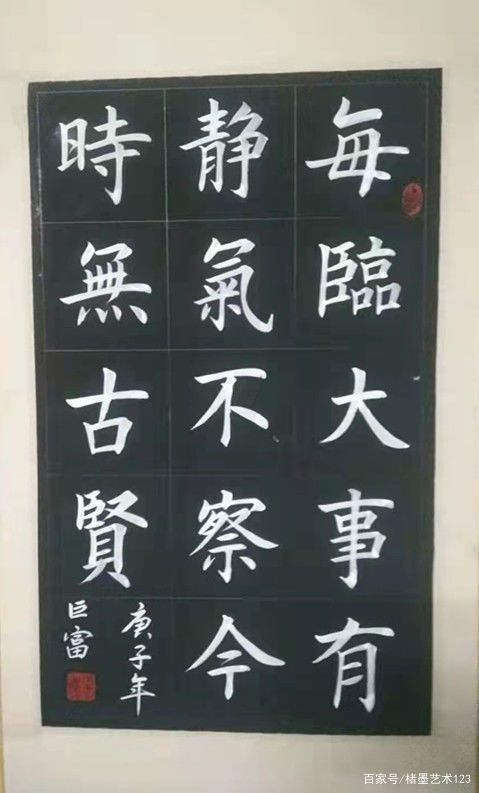 每臨大事有
静氣不察今
時無古賢
庚子年
巨富
百家号/楮墨艺术123